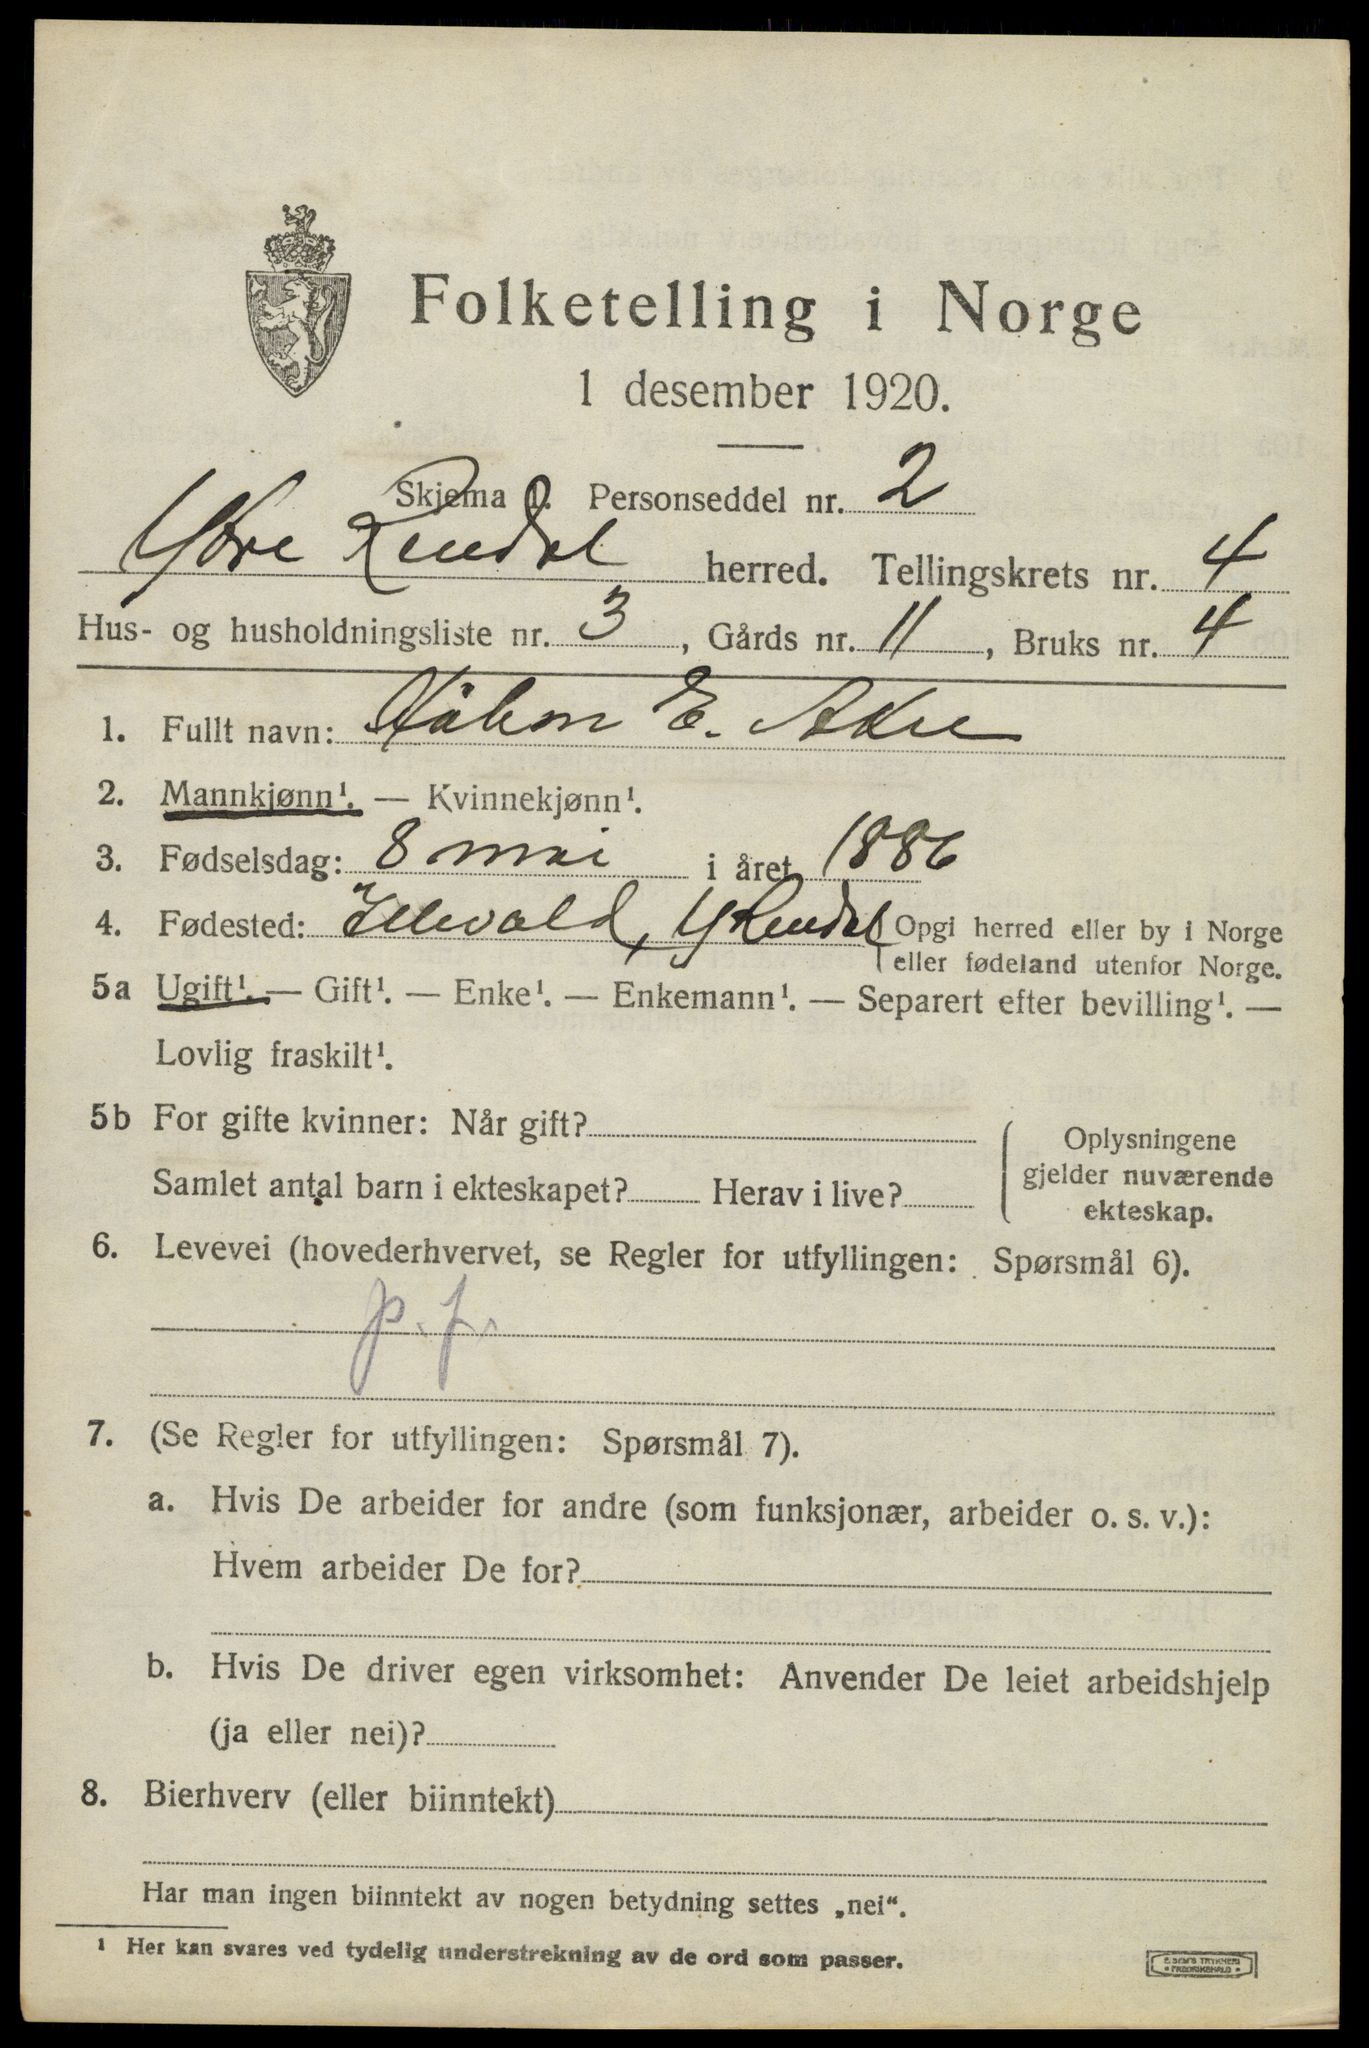 Folketelling i Norge
1 desember 1920.
Skjema 1. Personseddel nr. 2
Ytre Rendal herred. Tellingskrets nr. 4
Hus- og husholdningsliste nr. 3, Gårds nr. 11, Bruks nr. 4
1. Fullt navn: Håkon E. Akre
2. Mannkjønn¹. — Kvinnekjønn¹.
3. Fødselsdag: 8 mai i året 1886
4. Fødested: Ellevold, Y Rendal Opgi herred eller by i Norge
eller fødeland utenfor Norge.
5a Ugift¹. — Gift¹. — Enke¹. — Enkemann¹. — Separert efter bevilling¹. —
Lovlig fraskilt¹.
5b For gifte kvinner: Når gift?
Samlet antal barn i ekteskapet? Herav i live?
Oplysningene
gjelder nuværende
ekteskap.
6. Levevei (hovederhvervet, se Regler for utfyllingen: Spørsmål 6).
p. f.
7. (Se Regler for utfyllingen: Spørsmål 7).
a. Hvis De arbeider for andre (som funksjonær, arbeider o. s. v.):
Hvem arbeider De for?
b. Hvis De driver egen virksomhet: Anvender De leiet arbeidshjelp
(ja eller nei)?
8. Bierhverv (eller biinntekt)
Har man ingen biinntekt av nogen betydning settes „nei“.
¹ Her kan svares ved tydelig understrekning av de ord som passer.
E. SEM'S TRYKKERI
• FREDRIKSHALD •